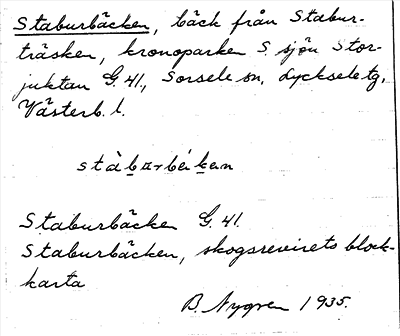 Staburbäcken, bäck från Stabur-
träsken, kronoparken S. sjön Stor-
juktan G. 41., Sorsele sn, Lycksele tg,
Västerb. l.
stàbɑrbékɛn
Staburbäcken G. 41.
Staburbäcken, skogsrevirets block-
karta
B. Nygren 1935.